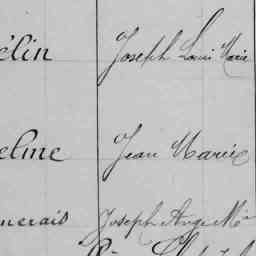 élin Joseph Louis Marie
eline Jean Marie
nerais Joseph Ange M